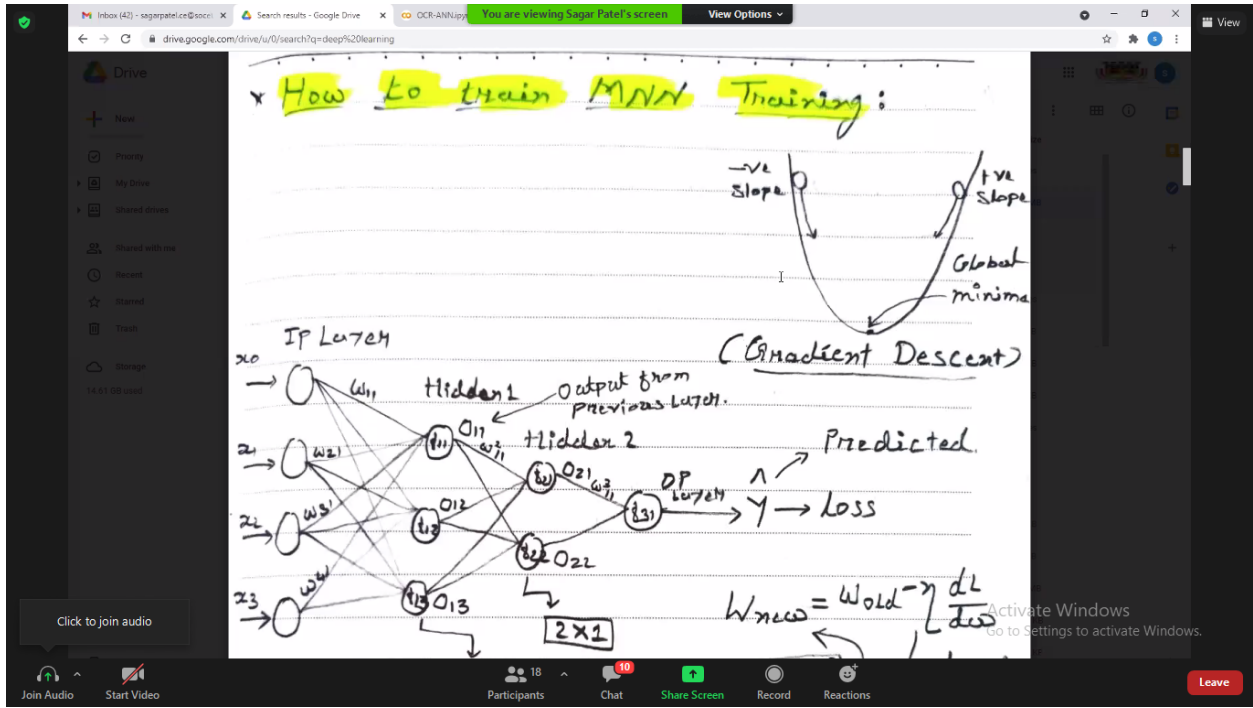 Inbox (42) - sagarpatel.ce@socet
Search results - Google Drive
OCR-ANN.ipyn
You are viewing Sagar Patel's screen
View Options
View
drive.google.com/drive/u/0/search?q=deep%20learning
Drive
New
Priority
My Drive
Shared drives
Shared with me
Recent
Starred
Trash
Storage
14.61 GB used
* How to train MNN Training:
-ve slope
+ve slope
Global minima
(Gradient Descent)
IP Layer
x0
w11
Hidden1
Output from
previous layer.
x1
w21
f11
O11
w²11
Hidden 2
Predicted
f21
O21
w³11
OP
Layer
^
Y → Loss
x2
w31
f12
O12
f31
f22
O22
x3
w41
f13
O13
2×1
Wnew = Wold - η dL/dw
Activate Windows
Go to Settings to activate Windows.
Click to join audio
Join Audio
Start Video
18
Participants
10
Chat
Share Screen
Record
Reactions
Leave